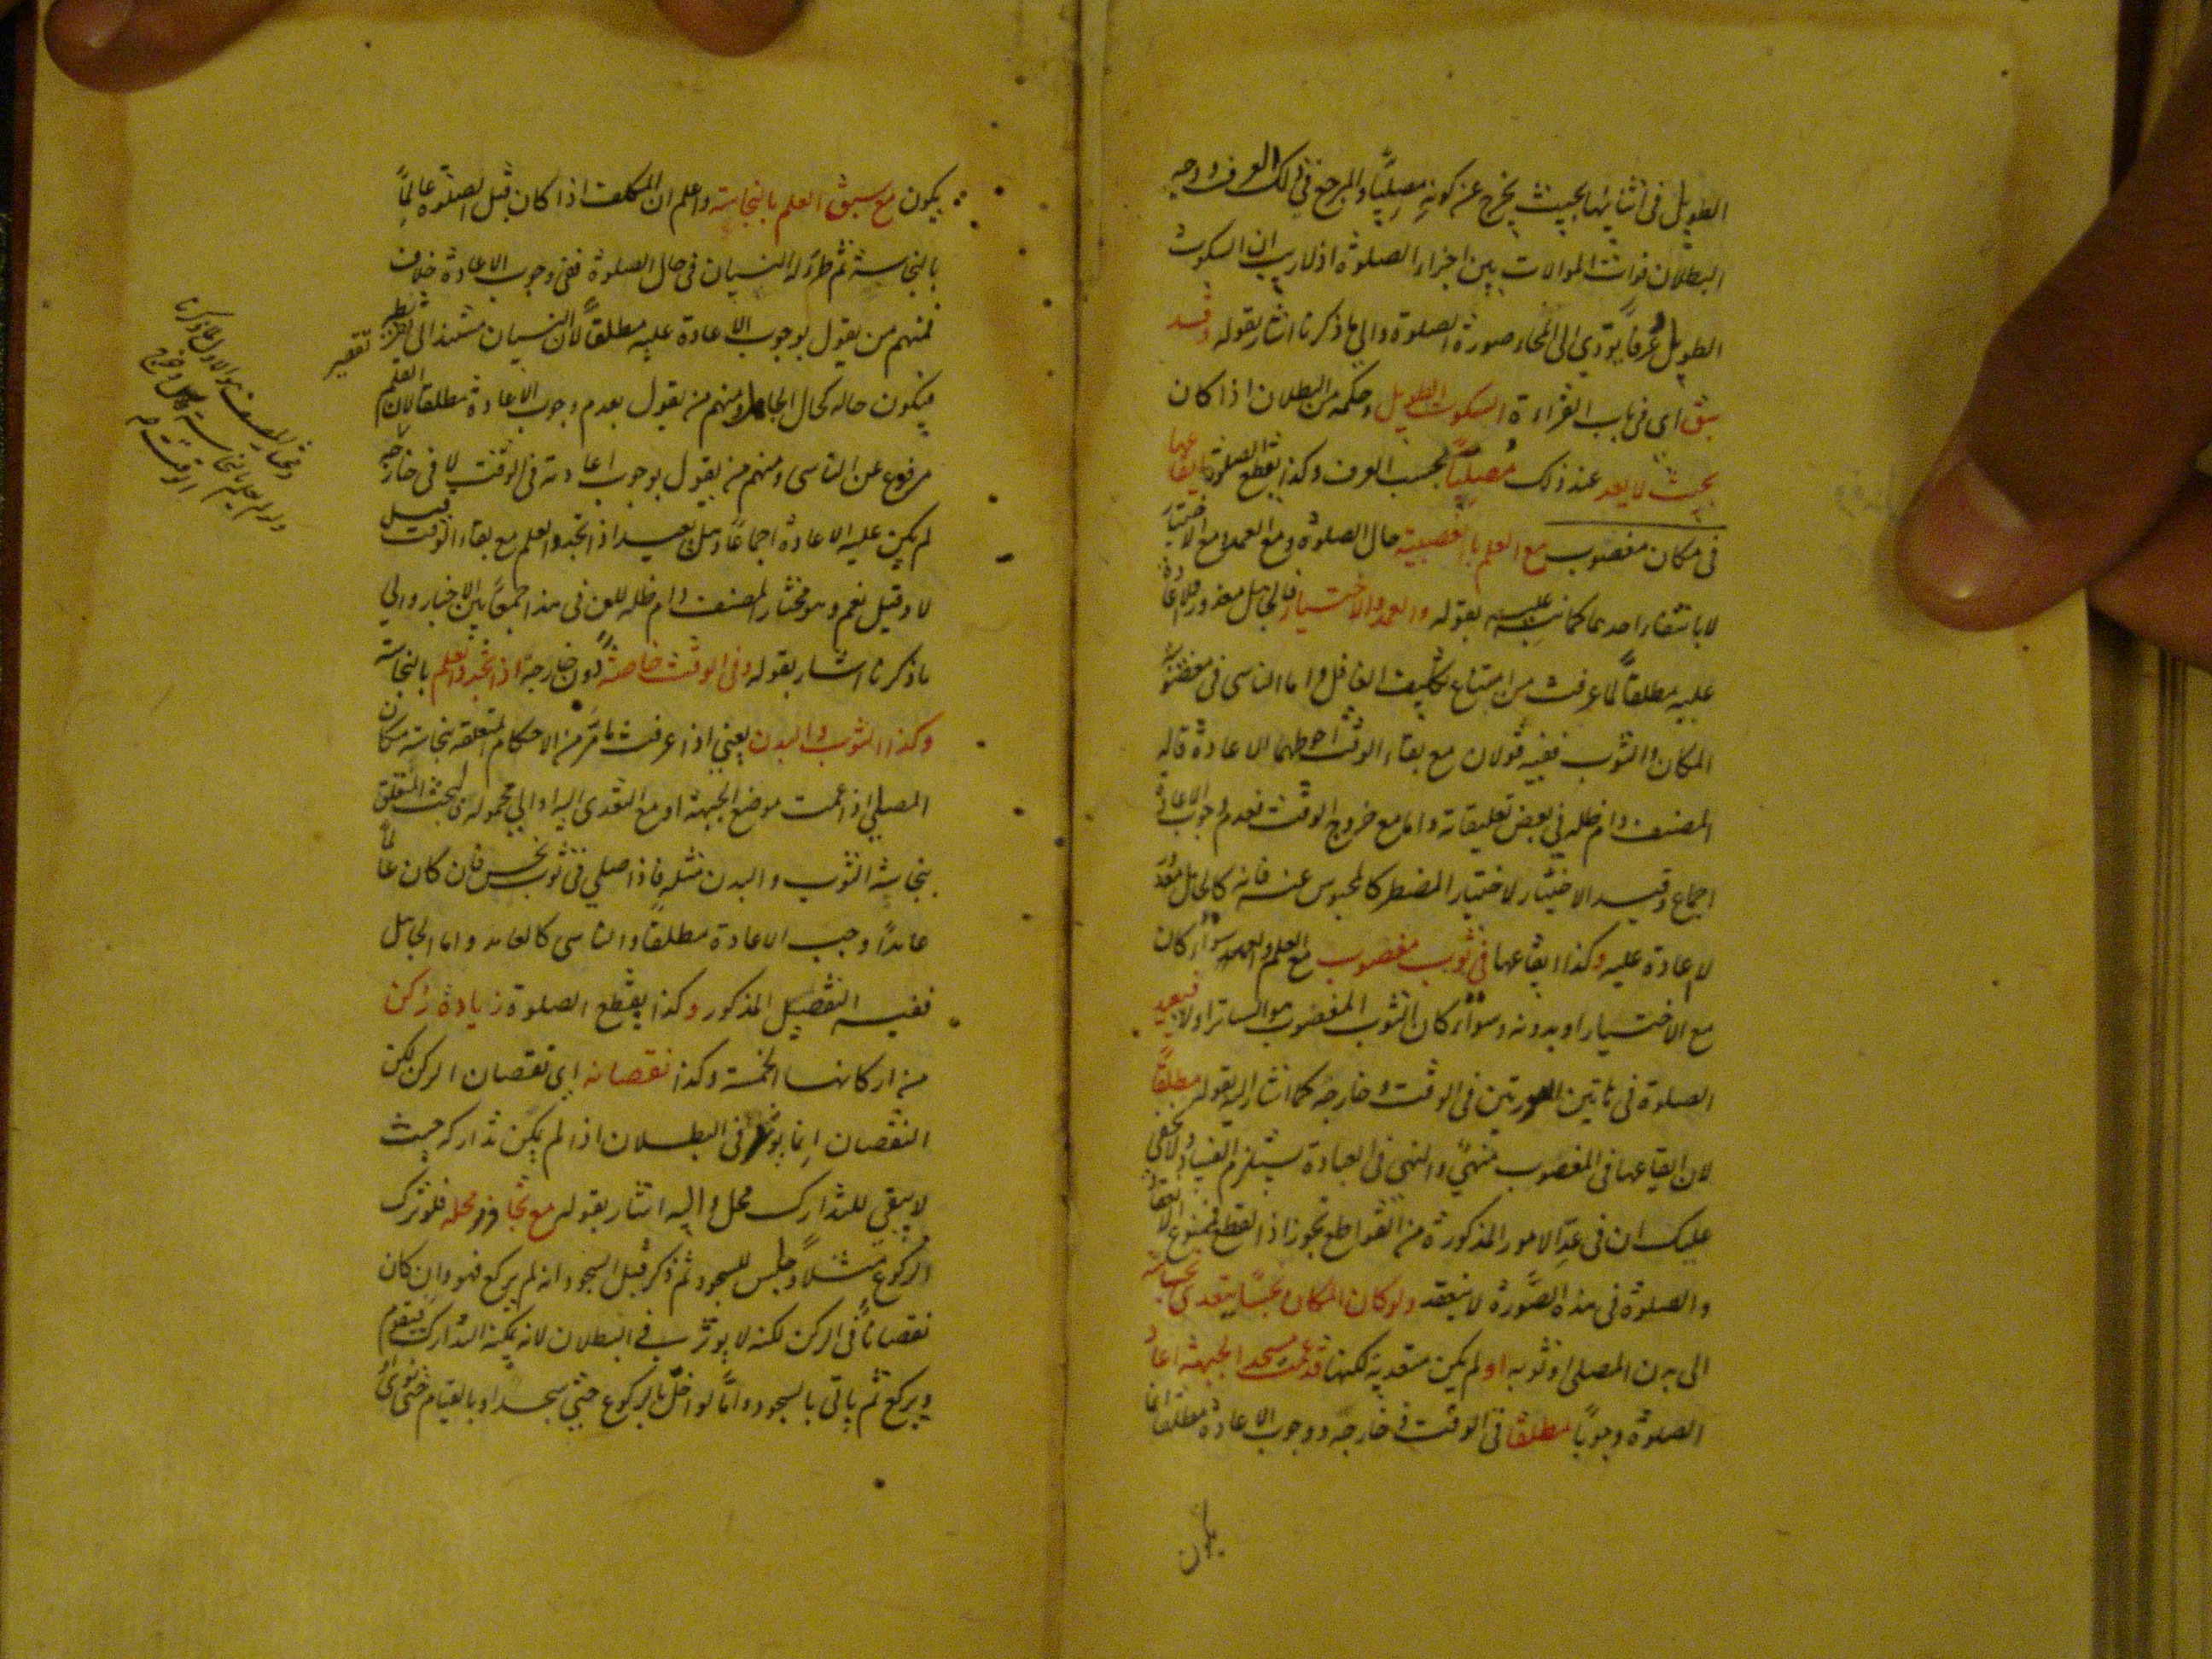 الطويل في اثنائها بحيث يخرج عن كونه مصليا والمرجع في ذلك العرف ووجه
البطلان فوات الموالات بين اجزاء الصلوة اذ لا ريب ان السكوت
الطويل عرفا يؤدي الى انمحاء صورة الصلوة والى ما ذكرنا اشار بقوله وقد
سبق اي في باب القراءة السكوت الطويل وحكمه من البطلان اذا كان
بحيث لا يعد عند ذلك مصليا بحسب العرف وكذا يقطع الصلوة ايقاعها
في مكان مغصوب مع العلم بالغصبية حال الصلوة ومع العمد ومع الاختيار
لا بانتفاء احدهما كما نبه عليه بقوله والعمد والاختيار فالجاهل معذور فلا اعادة
عليه مطلقا لما عرفت من امتناع تكليف الغافل واما الناسي في مغصوبية
المكان والثوب ففيه قولان مع بقاء الوقت احوطهما الاعادة قاله
المصنف دام ظله في بعض تعليقاته واما مع خروج الوقت فعدم وجوب الاعادة
اجماع وقيد الاختيار لاختيار المضطر كالمحبوس عنه فانه كالجاهل معذور
لا عادة عليه وكذا ايقاعها في ثوب مغصوب مع العلم والعمد سواء كان
مع الاختيار او بدونه وسواء كان الثوب المغصوب هو الساتر او لا فيعيد
الصلوة في هاتين الصورتين في الوقت وخارجه كما اشار اليه بقوله مطلقا
لان ايقاعها في المغصوب منهي والنهي في العبادة يستلزم الفساد ولا يخفى
عليك ان في عد الامور المذكورة من القواطع تجوز اذ القطع فرع الانعقاد
والصلوة في هذه الصورة لا ينعقد ولو كان المكان نجسا يتعدى نجاسته
الى بدن المصلي او ثوبه او لم يكن متعدية لكنها قد عمت مسجد الجبهة اعاد
الصلوة وجوبا مطلقا في الوقت وفي خارجه ووجوب الاعادة مطلقا انما
يكون
يكون مع سبق العلم بالنجاسة واعلم ان المكلف اذا كان قبل الصلوة عالما
بالنجاسة ثم طرء له النسيان في حال الصلوة ففي وجوب الاعادة خلاف
فمنهم من يقول بوجوب الاعادة عليه مطلقا لان النسيان مستند الى تقصير
فيكون حاله كحال الجاهل ومنهم من يقول بعدم وجوب الاعادة مطلقا لان القلم
مرفوع عن الناسي ومنهم من يقول بوجوب اعادته في الوقت لا في خارجه
لم يكن عليه الاعادة اجماعا وهل يعيد اذا تجدد العلم مع بقاء الوقت قيل
لا وقيل نعم وهو مختار المصنف دام ظله للعن في هذا جمعا بين الاخبار والى
ما ذكرنا اشار بقوله وفي الوقت خاصة دون خارجه اذا تجدد العلم بالنجاسة
وكذا الثوب والبدن يعني اذا عرفت ما مر من الاحكام المتعلقة بنجاسة مكان
المصلي اذا عمت موضع الجبهة او مع التعدي اليه او الى محموله فالبحث المتعلق
بنجاسة الثوب والبدن مثله فاذا صلى في ثوب نجس فان كان عالما
عامدا وجب الاعادة مطلقا والناسي كالعامد واما الجاهل
ففيه التفصيل المذكور وكذا يقطع الصلوة زيادة ركن
من اركانها الخمسة وكذا نقصانه اي نقصان الركن لكن
النقصان انما يؤثر في البطلان اذا لم يكن تداركه حيث
لا يبقى للتدارك محل واليه اشار بقوله مع تجاوز محله فلو ترك
الركوع مثلا وجلس للسجود ثم ذكر قبل السجود انه لم يركع فهو وان كان
نقصانا في الركن لكنه لا يؤثر في البطلان لانه يمكنه التدارك فيقوم
ويركع ثم ياتي بالسجود واما لو اخل بالركوع حتى سجد او بالقيام حتى
تقصير